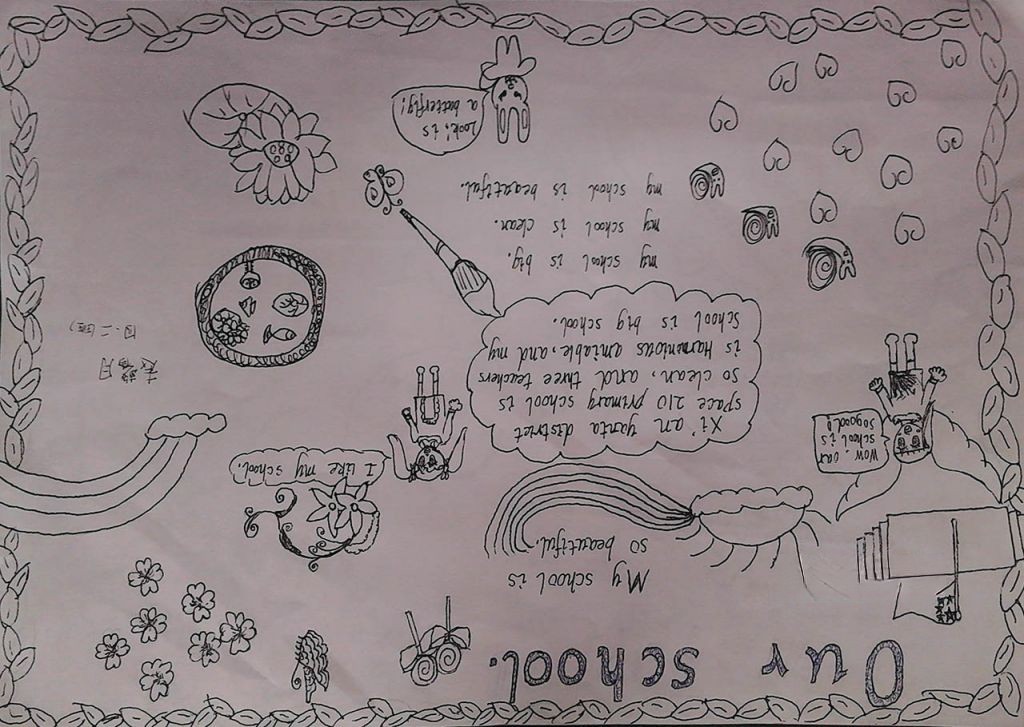 Our school.
My school is
so beautiful.
Wow. our
school is
so good!
I like my school.
Xi'an yanta district
space 210 primary school is
so clean, and three teachers
is harmonious amiable, and my
school is big school.
my school is big.
my school is clean.
my school is beautiful.
Look! is
a butterfly!
四.二(班)